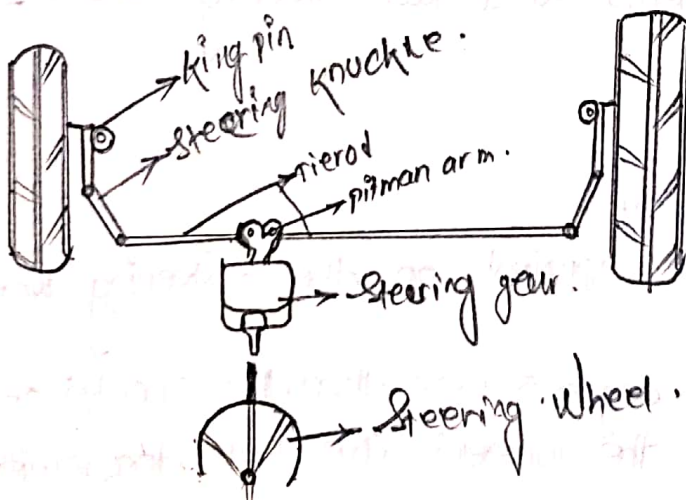 king pin
steering knuckle.
tierod
pitman arm.
steering gear.
steering wheel.